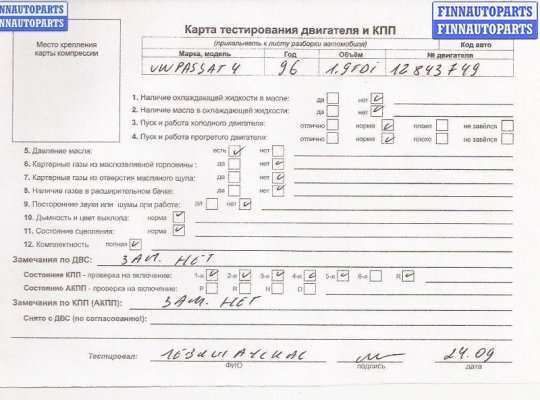 FINNAUTOPARTS
FINNAUTOPARTS
FINNAUTOPARTS
FINNAUTOPARTS
Место крепления
карты компрессии
Карта тестирования двигателя и КПП
(прикалывать к листу разборки автомобиля)
Код авто
Марка, модель Год Объём № двигателя
VW PASSAT 4 96 1.9 TDi 12843749
1. Наличие охлаждающей жидкости в масле: да нет
2. Наличие масла в охлаждающей жидкости: да нет
3. Пуск и работа холодного двигателя: отлично норма плохо не завёлся
4. Пуск и работа прогретого двигателя: отлично норма плохо не завёлся
5. Давление масла: есть нет
6. Картерные газы из маслозаливной горловины: да нет
7. Картерные газы из отверстия масляного щупа: да нет
8. Наличие газов в расширительном бачке: да нет
9. Посторонние звуки или шумы при работе: да нет
10. Дымность и цвет выхлопа: норма
11. Состояние сцепления: норма
12. Комплектность полная
Замечания по ДВС: ЗАМ. НЕТ
Состояние КПП - проверка на включение: 1-я 2-я 3-я 4-я 5-я 6-я R
Состояние АКПП - проверка на включение: P R N D
Замечания по КПП (АКПП): ЗАМ. НЕТ
Снято с ДВС (по согласованию!):
Тестировал: 24.09
ФИО подпись дата